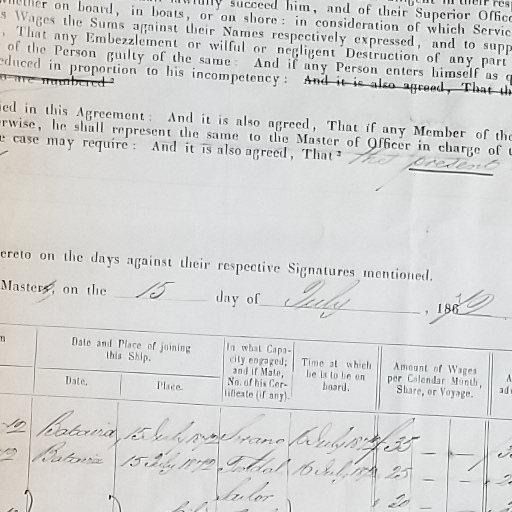 whether on board, in boats, or on shore: in consideration of which Servic
s Wages the Sums against their Names respectively expressed, and to supp
. That any Embezzlement or wilful or negligent Destruction of any part
of the Person guilty of the same: And if any Person enters himself as q
educed in proportion to his incompetency: And it is also agreed, That th
o are numbered
ied in this Agreement: And it is also agreed, That if any Member of the
erwise, he shall represent the same to the Master of Officer in charge of t
e case may require: And it is also agreed, That ³ the present
ereto on the days against their respective Signatures mentioned.
Master, on the 15 day of July , 186
Date and Place of joining this Ship.
Date. Place.
In what Capa-
city engaged;
and if Mate,
No. of his Cer-
tificate (if any).
Time at which
he is to be on
board.
Amount of Wages
per Calendar Month,
Share, or Voyage.
Batavia 15 July 16 July 35
Batavia 15 July 16 July 25
20